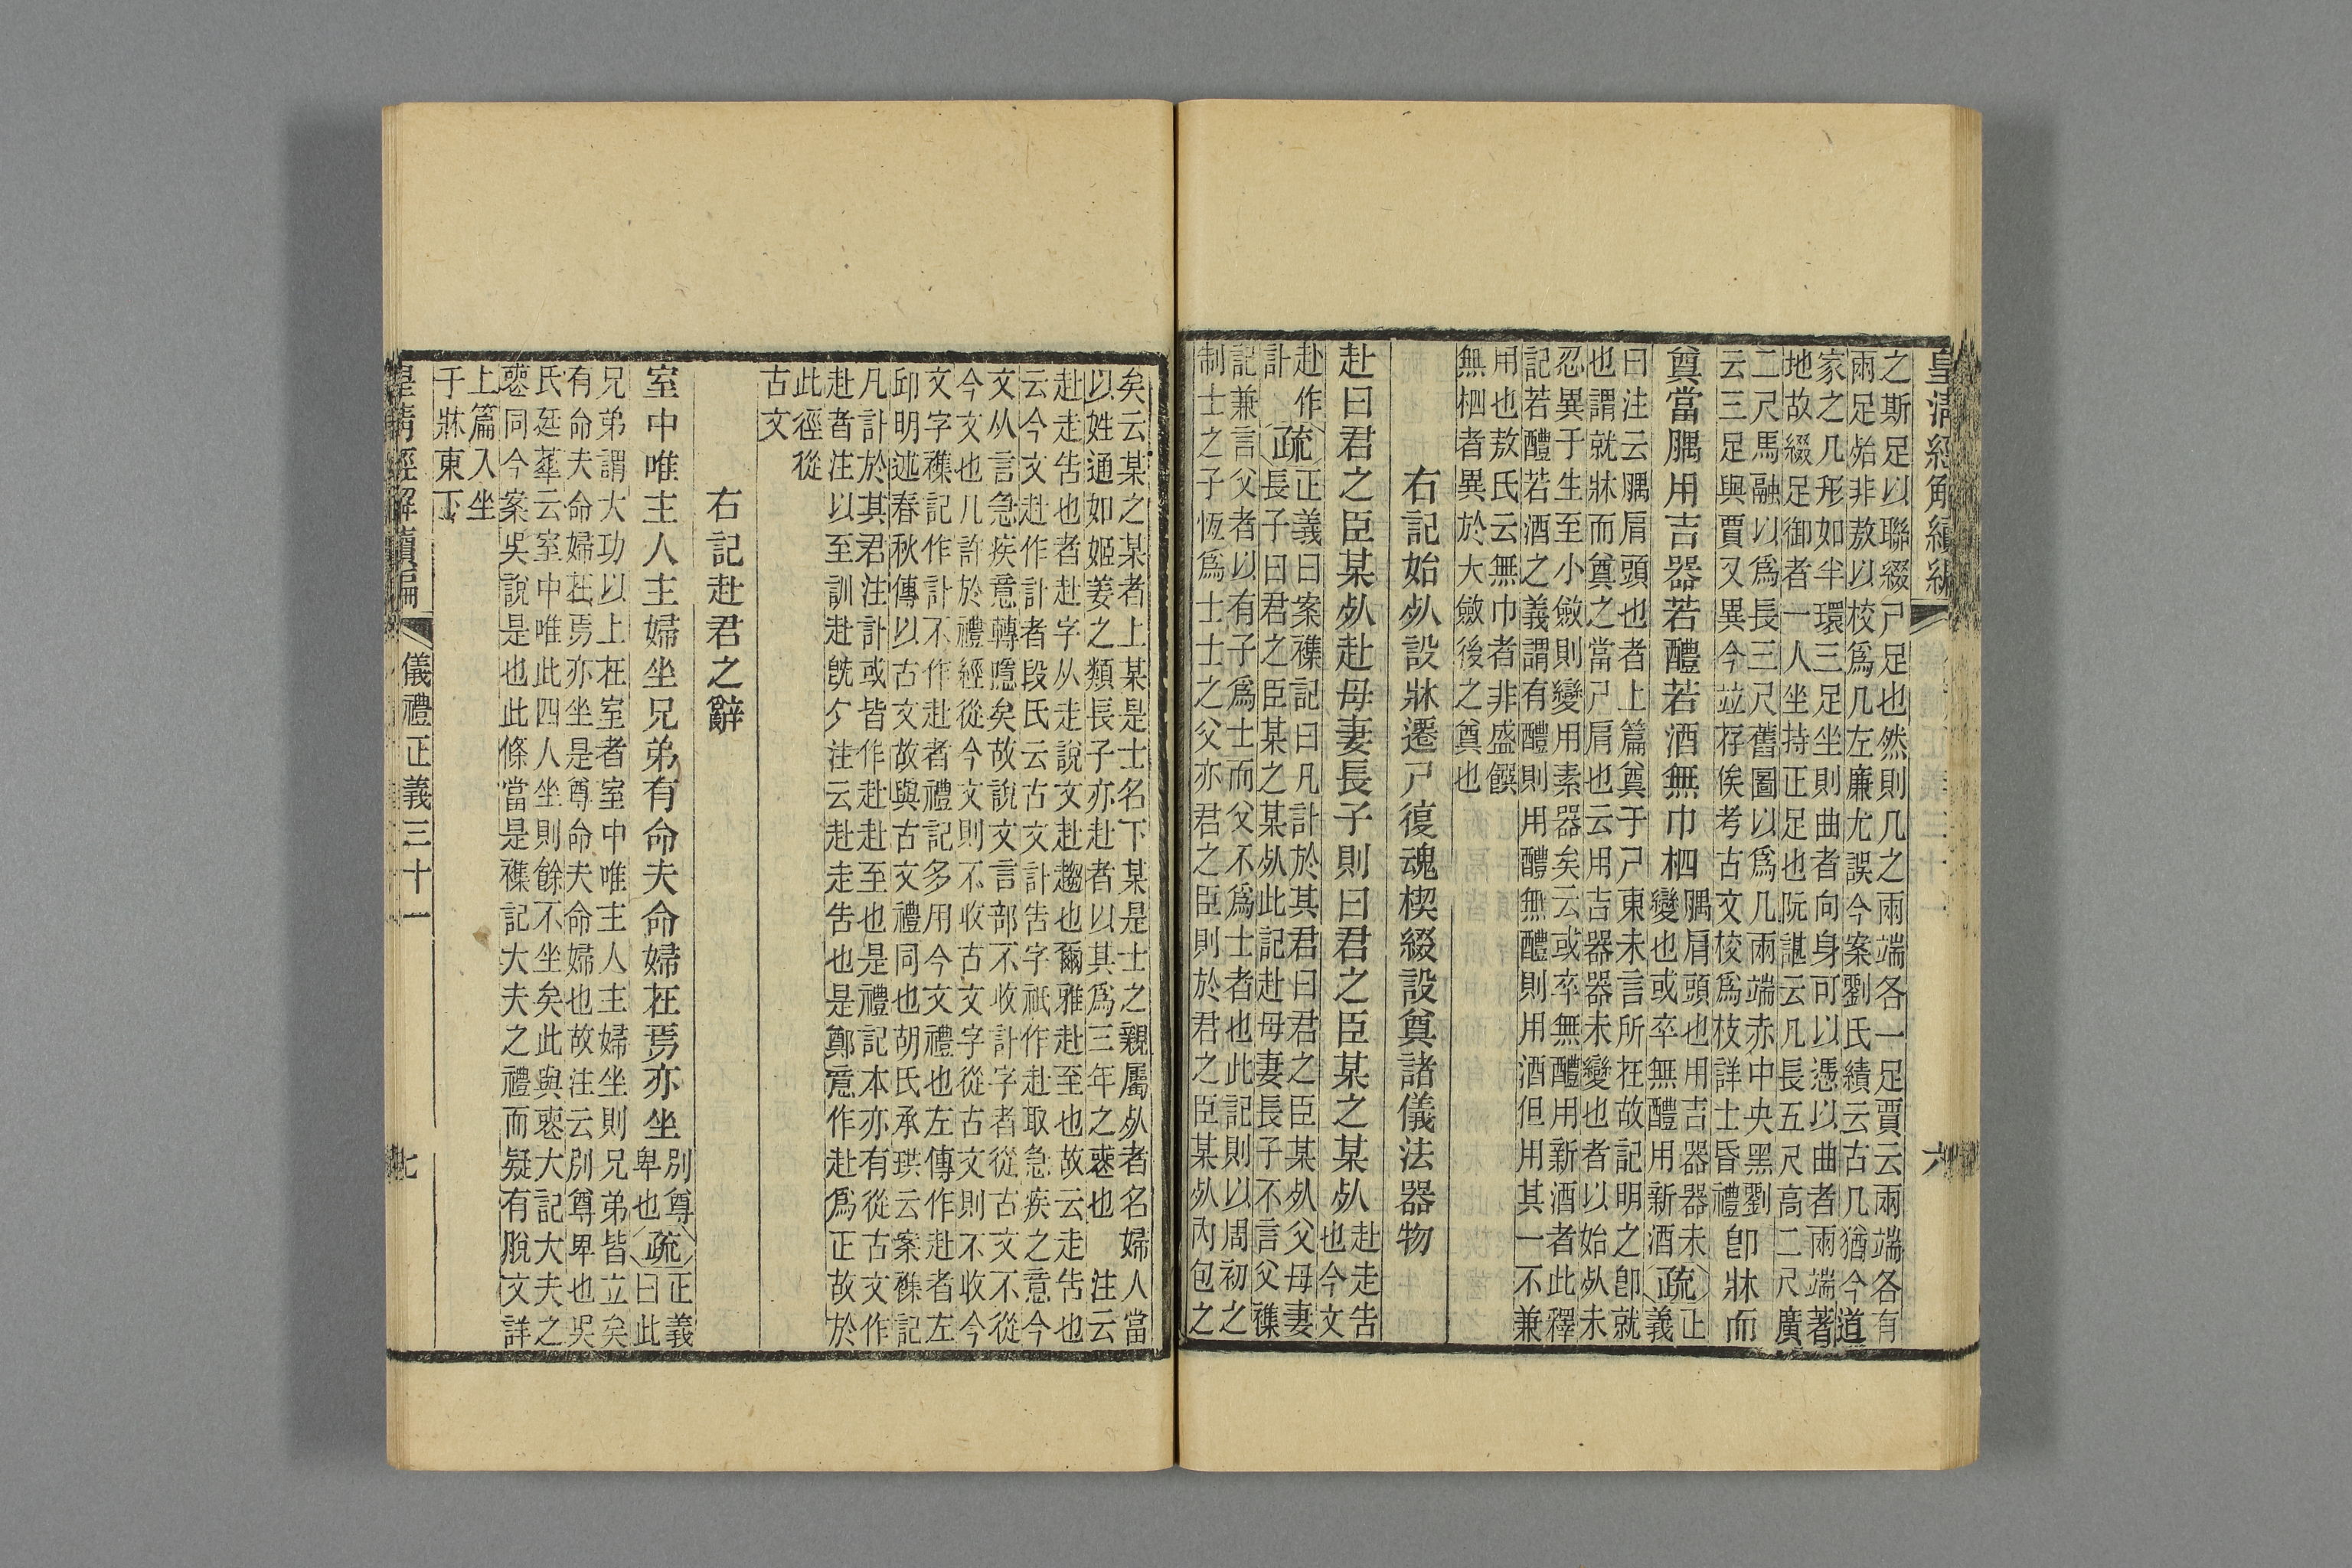 皇清經解續編
六
之斯足以聯綴尸足也然則几之兩端各一足賈云兩端各有
兩足殆非敖以校爲几左廉尤誤今案劉氏績云古几猶今道
家之几形如半環三足坐則曲者向身可以憑以曲者兩端著
地故綴足御者一人坐持正足也阮諶云几長五尺高二尺廣
二尺馬融以爲長三尺舊圖以爲几兩端赤中央黑劉
云三足與賈又異今竝存俟考古文校爲枝詳士昏禮
卽牀而
奠當腢用吉器若醴若酒無巾柶
腢肩頭也用吉器器未
變也或卒無醴用新酒
疏
正
義
曰注云腢肩頭也者上篇奠于尸東未言所在故記明之卽就
也謂就牀而奠之當尸肩也云用吉器器未變也者以始𣦸未
忍異于生至小斂則變用素器矣云或卒無醴用新酒者此釋
記若醴若酒之義謂有醴則用醴無醴則用酒但用其一不兼
用也敖氏云無巾者非盛饌
無柶者異於大斂後之奠也
右記始𣦸設牀遷尸復魂楔綴設奠諸儀法器物
赴曰君之臣某𣦸赴母妻長子則曰君之臣某之某𣦸
赴走告
也今文
赴作
計
疏
正義曰案襍記曰凡計於其君曰君之臣某𣦸父母妻
長子曰君之臣某之某𣦸此記赴母妻長子不言父襍
記兼言父者以有子爲士而父不爲士者也此記則以周初之
制士之子恆爲士士之父亦君之臣則於君之臣某𣦸內包之
矣云某之某者上某是士名下某是士之親屬𣦸者名婦人當
以姓通如姬姜之類長子亦赴者以其爲三年之喪也 注云
赴走告也者赴字从走說文赴趨也爾雅赴至也故云走告也
云今文赴作計者段氏云古文計告字祇作赴取急疾之意今
文从言急疾意轉隱矣故說文言部不收計字者從古文不從
今文也凡許於禮經從今文則不收古文字從古文則不收今
文字襍記作計不作赴者禮記多用今文禮也左傳作赴者左
邱明述春秋傳以古文故與古文禮同也胡氏承珙云案襍記
凡計於其君注計或皆作赴赴至也是禮記本亦有從古文作
赴者注以至訓赴旣夕注云赴走告也是鄭意作赴爲正故於
此徑從
古文
右記赴君之辭
室中唯主人主婦坐兄弟有命夫命婦在焉亦坐
別尊
卑也
疏
正義
曰此
兄弟謂大功以上在室者室中唯主人主婦坐則兄弟皆立矣
有命夫命婦在焉亦坐是尊命夫命婦也故注云別尊卑也吳
氏廷華云室中唯此四人坐則餘不坐矣此與喪大記大夫之
喪同今案吳說是也此條當是襍記大夫之禮而疑有脫文詳
上篇入坐
于牀東下
皇清經解續編
儀禮正義三十一
七